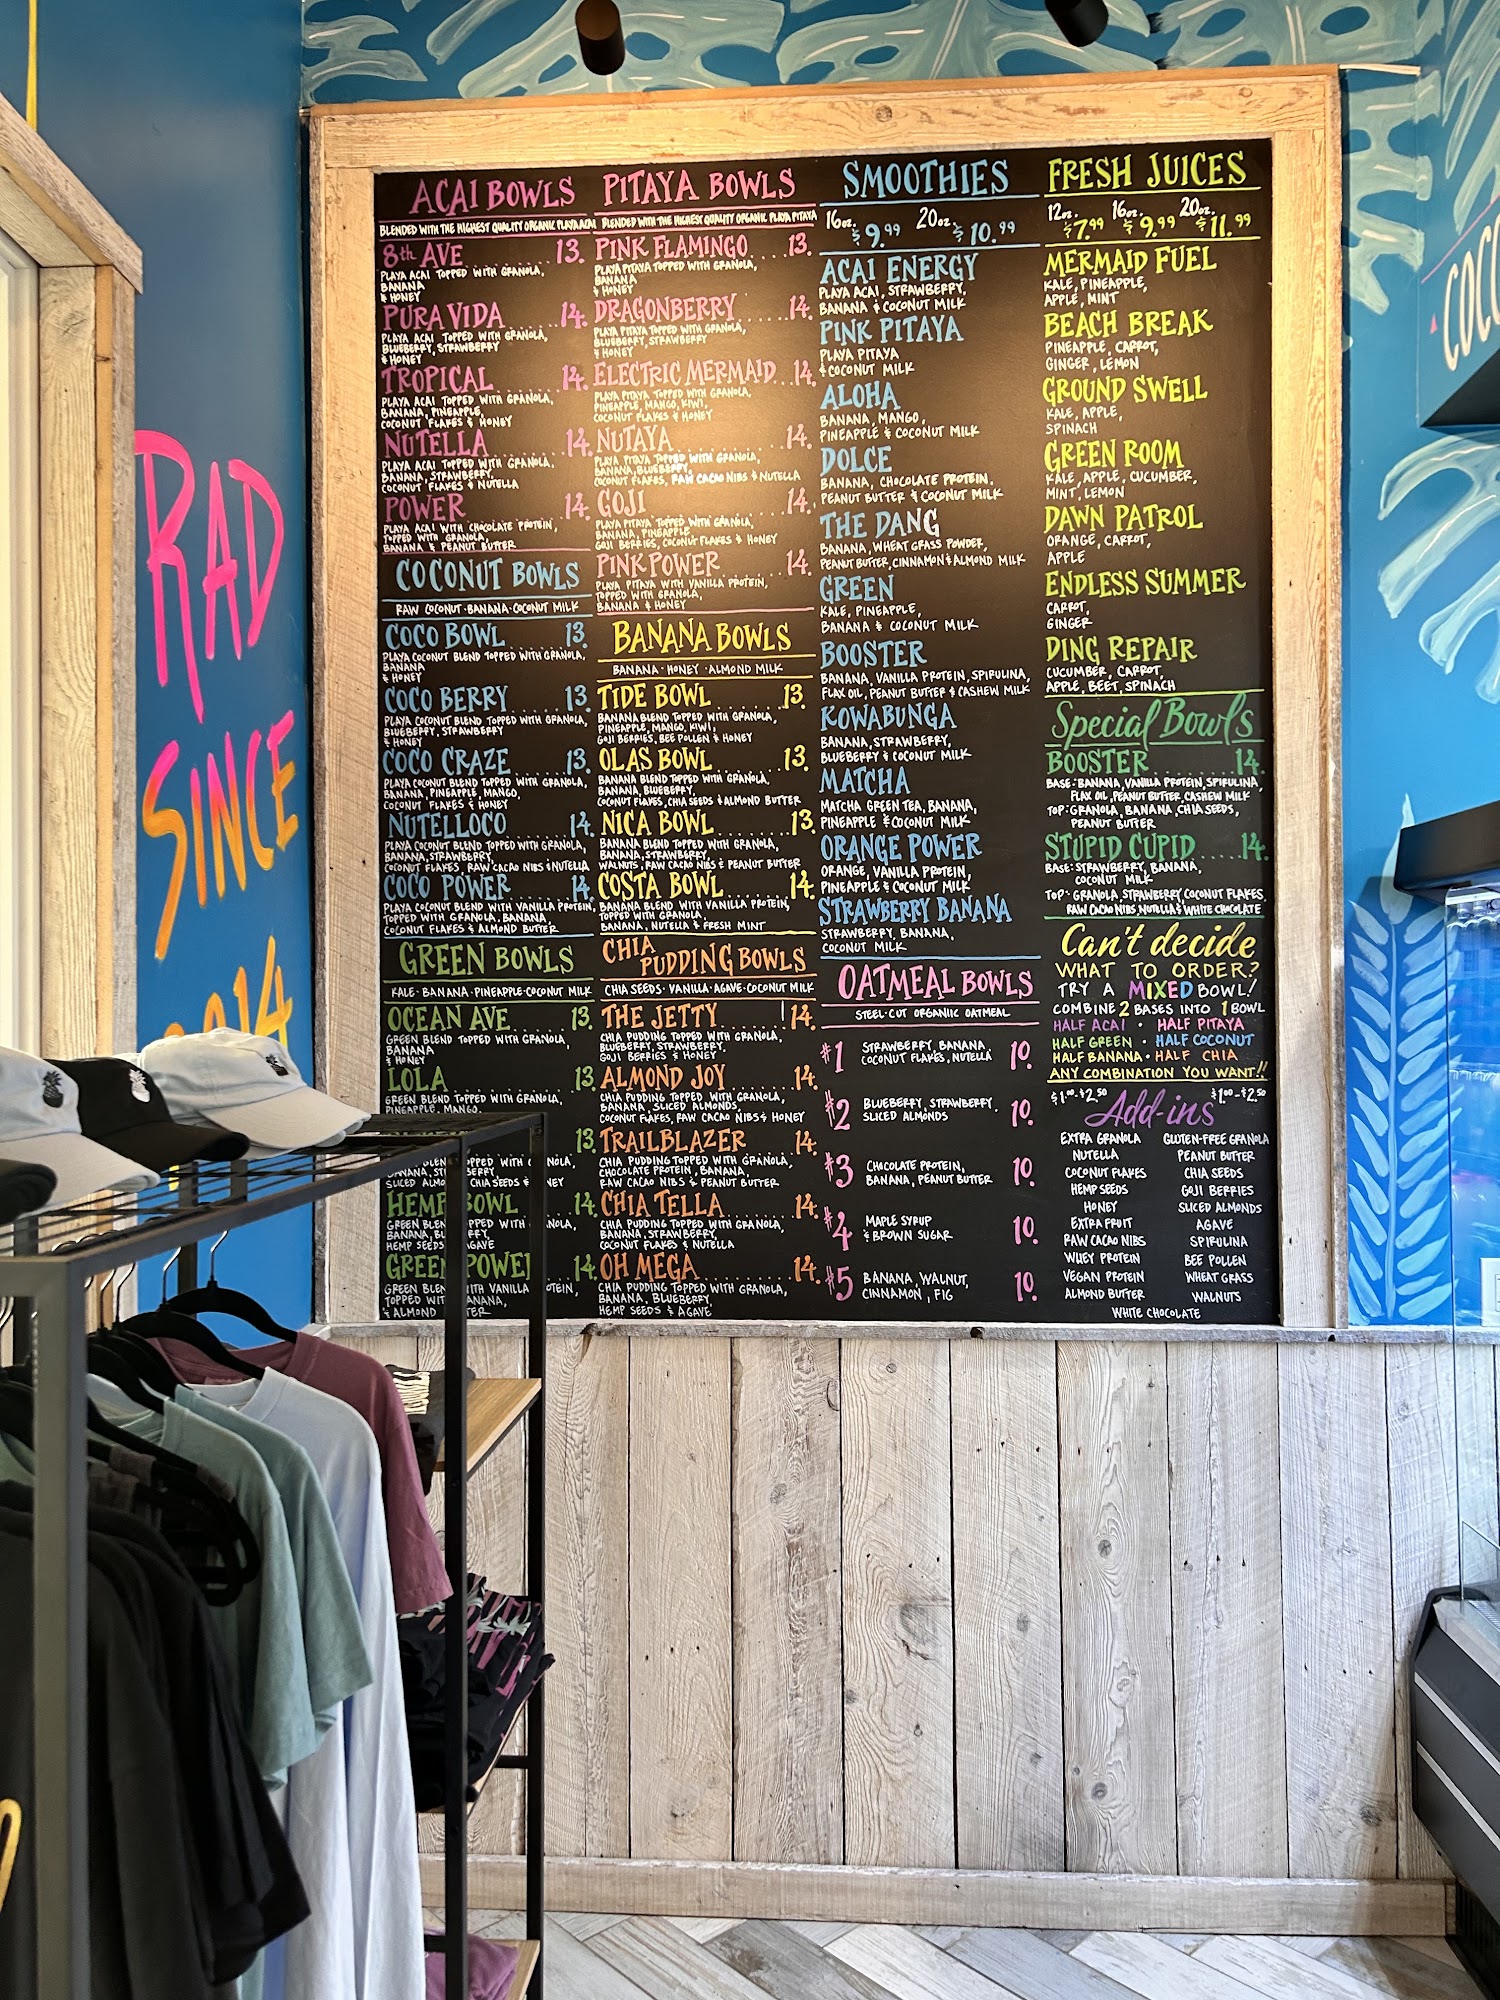 RAD
SINCE
COCO
ACAI BOWLS
BLENDED WITH THE HIGHEST QUALITY ORGANIC PLAYA ACAI
8th AVE......13.
PLAYA ACAI TOPPED WITH GRANOLA,
BANANA
& HONEY
PURA VIDA...14.
PLAYA ACAI TOPPED WITH GRANOLA,
BLUEBERRY, STRAWBERRY
& HONEY
TROPICAL......14.
PLAYA ACAI TOPPED WITH GRANOLA,
BANANA, PINEAPPLE,
COCONUT FLAKES & HONEY
NUTELLA......14.
PLAYA ACAI TOPPED WITH GRANOLA,
BANANA, STRAWBERRY
COCONUT FLAKES & NUTELLA
POWER......14.
PLAYA ACAI WITH CHOCOLATE PROTEIN,
TOPPED WITH GRANOLA,
BANANA & PEANUT BUTTER
COCONUT BOWLS
RAW COCONUT·BANANA·COCONUT MILK
COCO BOWL......13.
PLAYA COCONUT BLEND TOPPED WITH GRANOLA,
BANANA
& HONEY
COCO BERRY......13.
PLAYA COCONUT BLEND TOPPED WITH GRANOLA,
BLUEBERRY, STRAWBERRY
& HONEY
COCO CRAZE......13.
PLAYA COCONUT BLEND TOPPED WITH GRANOLA,
BANANA, PINEAPPLE, MANGO,
COCONUT FLAKES & HONEY
NUTELLOCO......14.
PLAYA COCONUT BLEND TOPPED WITH GRANOLA,
BANANA, STRAWBERRY,
COCONUT FLAKES, RAW CACAO NIBS & NUTELLA
COCO POWER......14.
PLAYA COCONUT BLEND WITH VANILLA PROTEIN,
TOPPED WITH GRANOLA, BANANA,
COCONUT FLAKES & ALMOND BUTTER
GREEN BOWLS
KALE·BANANA·PINEAPPLE·COCONUT MILK
OCEAN AVE......13.
GREEN BLEND TOPPED WITH GRANOLA,
BANANA
& HONEY
LOLA......13.
GREEN BLEND TOPPED WITH GRANOLA,
PINEAPPLE, MANGO,
13.
SLICED CHIA SEEDS &
HEMP BOWL 14.
GREEN
BANANA,
HEMP SEEDS AGAVE
GREEN POWER 14.
GREEN WITH VANILLA
TOPPED BANANA,
& ALMOND
PITAYA BOWLS
BLENDED WITH THE HIGHEST QUALITY ORGANIC PLAYA PITAYA
PINK FLAMINGO......13.
PLAYA PITAYA TOPPED WITH GRANOLA,
BANANA
& HONEY
DRAGONBERRY......14.
PLAYA PITAYA TOPPED WITH GRANOLA,
BLUEBERRY, STRAWBERRY
& HONEY
ELECTRIC MERMAID..14.
PLAYA PITAYA TOPPED WITH GRANOLA,
PINEAPPLE, MANGO, KIWI,
COCONUT FLAKES & HONEY
NUTAYA......14.
PLAYA PITAYA TOPPED WITH GRANOLA,
BANANA, BLUEBERRY,
COCONUT FLAKES, RAW CACAO NIBS & NUTELLA
GOJI......14.
PLAYA PITAYA TOPPED WITH GRANOLA,
BANANA, PINEAPPLE
GOJI BERRIES, COCONUT FLAKES & HONEY
PINK POWER......14.
PLAYA PITAYA WITH VANILLA PROTEIN,
TOPPED WITH GRANOLA,
BANANA & HONEY
BANANA BOWLS
BANANA·HONEY·ALMOND MILK
TIDE BOWL......13.
BANANA BLEND TOPPED WITH GRANOLA,
PINEAPPLE, MANGO, KIWI,
GOJI BERRIES, BEE POLLEN & HONEY
OLAS BOWL......13.
BANANA BLEND TOPPED WITH GRANOLA,
BANANA, BLUEBERRY,
COCONUT FLAKES, CHIA SEEDS & ALMOND BUTTER
NICA BOWL......13.
BANANA BLEND TOPPED WITH GRANOLA,
BANANA, STRAWBERRY,
WALNUTS, RAW CACAO NIBS & PEANUT BUTTER
COSTA BOWL......14.
BANANA BLEND WITH VANILLA PROTEIN,
TOPPED WITH GRANOLA,
BANANA, NUTELLA & FRESH MINT
CHIA PUDDING BOWLS
CHIA SEEDS·VANILLA·AGAVE·COCONUT MILK
THE JETTY......14.
CHIA PUDDING TOPPED WITH GRANOLA,
BLUEBERRY, STRAWBERRY,
GOJI BERRIES & HONEY
ALMOND JOY......14.
CHIA PUDDING TOPPED WITH GRANOLA,
BANANA, SLICED ALMONDS,
COCONUT FLAKES, RAW CACAO NIBS & HONEY
TRAILBLAZER......14.
CHIA PUDDING TOPPED WITH GRANOLA,
CHOCOLATE PROTEIN, BANANA,
RAW CACAO NIBS & PEANUT BUTTER
CHIA TELLA......14.
CHIA PUDDING TOPPED WITH GRANOLA,
BANANA, STRAWBERRY,
COCONUT FLAKES & NUTELLA
OH MEGA......14.
CHIA PUDDING TOPPED WITH GRANOLA,
BANANA, BLUEBERRY
HEMP SEEDS & AGAVE
SMOOTHIES
16oz. $9.99 20oz. $10.99
ACAI ENERGY
PLAYA ACAI, STRAWBERRY,
BANANA & COCONUT MILK
PINK PITAYA
PLAYA PITAYA
& COCONUT MILK
ALOHA
BANANA, MANGO,
PINEAPPLE & COCONUT MILK
DOLCE
BANANA, CHOCOLATE PROTEIN,
PEANUT BUTTER & COCONUT MILK
THE DANG
BANANA, WHEAT GRASS POWDER,
PEANUT BUTTER, CINNAMON & ALMOND MILK
GREEN
KALE, PINEAPPLE,
BANANA & COCONUT MILK
BOOSTER
BANANA, VANILLA PROTEIN, SPIRULINA,
FLAX OIL, PEANUT BUTTER & CASHEW MILK
KOWABUNGA
BANANA, STRAWBERRY,
BLUEBERRY & COCONUT MILK
MATCHA
MATCHA GREEN TEA, BANANA,
PINEAPPLE & COCONUT MILK
ORANGE POWER
ORANGE, VANILLA PROTEIN,
PINEAPPLE & COCONUT MILK
STRAWBERRY BANANA
STRAWBERRY, BANANA,
COCONUT MILK
OATMEAL BOWLS
STEEL-CUT ORGANIC OATMEAL
#1 STRAWBERRY, BANANA, 10.
COCONUT FLAKES, NUTELLA
#2 BLUEBERRY, STRAWBERRY, 10.
SLICED ALMONDS
#3 CHOCOLATE PROTEIN, 10.
BANANA, PEANUT BUTTER
#4 MAPLE SYRUP 10.
& BROWN SUGAR
#5 BANANA, WALNUT, 10.
CINNAMON, FIG
FRESH JUICES
12oz. $7.99 16oz. $9.99 20oz. $11.99
MERMAID FUEL
KALE, PINEAPPLE,
APPLE, MINT
BEACH BREAK
PINEAPPLE, CARROT,
GINGER, LEMON
GROUND SWELL
KALE, APPLE,
SPINACH
GREEN ROOM
KALE, APPLE, CUCUMBER,
MINT, LEMON
DAWN PATROL
ORANGE, CARROT,
APPLE
ENDLESS SUMMER
CARROT,
GINGER
DING REPAIR
CUCUMBER, CARROT,
APPLE, BEET, SPINACH
Special Bowls
BOOSTER......14.
BASE: BANANA, VANILLA PROTEIN, SPIRULINA,
FLAX OIL, PEANUT BUTTER, CASHEW MILK
TOP: GRANOLA, BANANA, CHIA SEEDS,
PEANUT BUTTER
STUPID CUPID.....14.
BASE: STRAWBERRY, BANANA,
COCONUT MILK
TOP: GRANOLA, STRAWBERRY, COCONUT FLAKES,
RAW CACAO NIBS, NUTELLA & WHITE CHOCOLATE
Can't decide
WHAT TO ORDER?
TRY A MIXED BOWL!
COMBINE 2 BASES INTO 1 BOWL
HALF ACAI · HALF PITAYA
HALF GREEN · HALF COCONUT
HALF BANANA · HALF CHIA
ANY COMBINATION YOU WANT!!
$1.00-$2.50 $1.00-$2.50
Add-ins
EXTRA GRANOLA GLUTEN-FREE GRANOLA
NUTELLA PEANUT BUTTER
COCONUT FLAKES CHIA SEEDS
HEMP SEEDS GOJI BERRIES
HONEY SLICED ALMONDS
EXTRA FRUIT AGAVE
RAW CACAO NIBS SPIRULINA
WHEY PROTEIN BEE POLLEN
VEGAN PROTEIN WHEAT GRASS
ALMOND BUTTER WALNUTS
WHITE CHOCOLATE